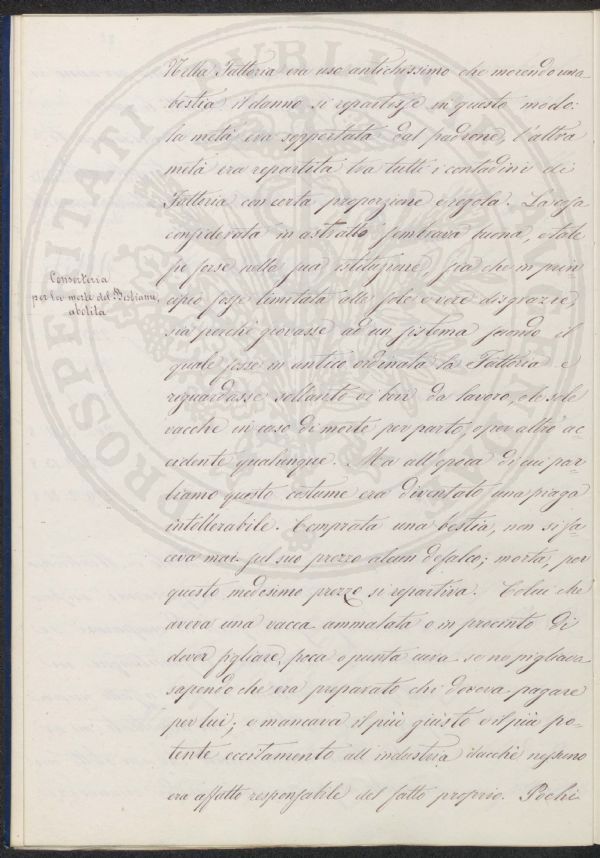 Nella Fattoria era uso antichissimo che morendo una
bestia il danno si repartisse in questo modo:
la metà era sopportata dal padrone, l'altra
metà era repartita tra tutti i contadini di
Fattoria con certa proporzione e regola. La cosa
considerata in astratto sembrava buona, e tale
fu forse nella sua istituzione, sia che in prin
cipio fosse limitata alle sole e vere disgrazie,
sia perchè giovasse ad un sistema secondo il
quale fosse in antico ordinata la Fattoria e
riguardasse soltanto vi bovi da lavoro, e le sole
vacche in caso di morte per parto, o per altro ac
cidente qualunque. Ma all'epoca di cui par
liamo questo costume era diventato una piaga
intollerabile. Comprata una bestia, non si fa
ceva mai sul suo prezzo alcun defalco; morta, per
questo medesimo prezzo si repartiva. Colui che
aveva una vacca ammalata o in procinto di
dover figliare, poca o punta cura se ne pigliava
sapendo che era preparato chi doveva pagare
per lui; e mancava il più giusto e il più po
tente eccitamento all'industria dacchè nessuno
era affatto responsabile del fatto proprio. Pochi
Consorteria
per la morte del Bestiame,
abolita
PROSPERITATI PUBLICAE